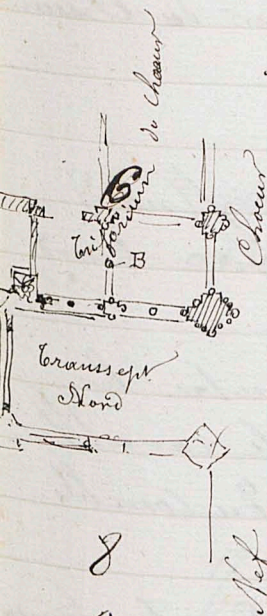 du Chœur
6
Triforium
B
Chœur
Transsept
Nord
8
Nef